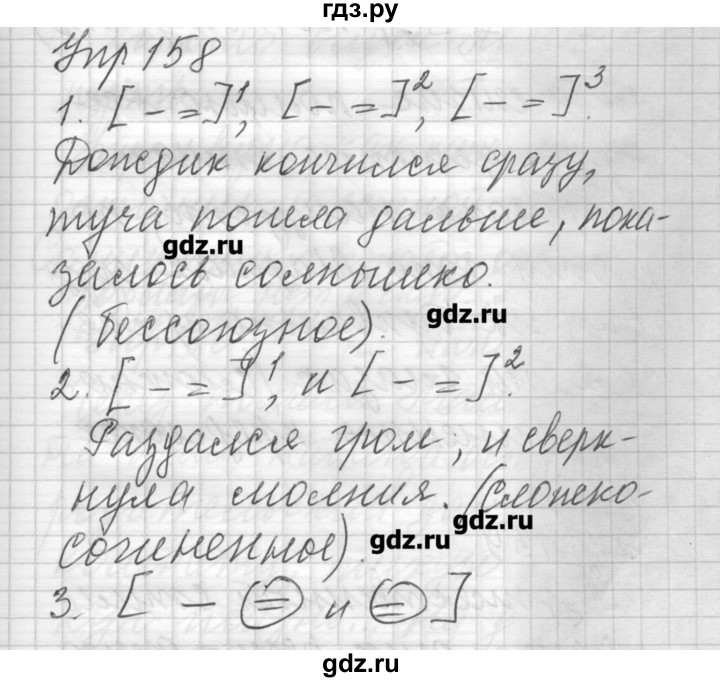 гдз.ру
Упр 158
1. [ – = ]¹, [ – = ]², [ – = ]³.
Дождик кончился сразу,
туча пошла дальше, пока-
gdz.ru
залось солнышко.
(Бессоюзное).
gdz.ru
2. [ – = ]¹, и [ – = ]².
Раздался гром, и сверк-
нула молния. (Сложно-
gdz.ru
сочиненное).
gdz.ru
3. [ – = и = ]
gdz.ru